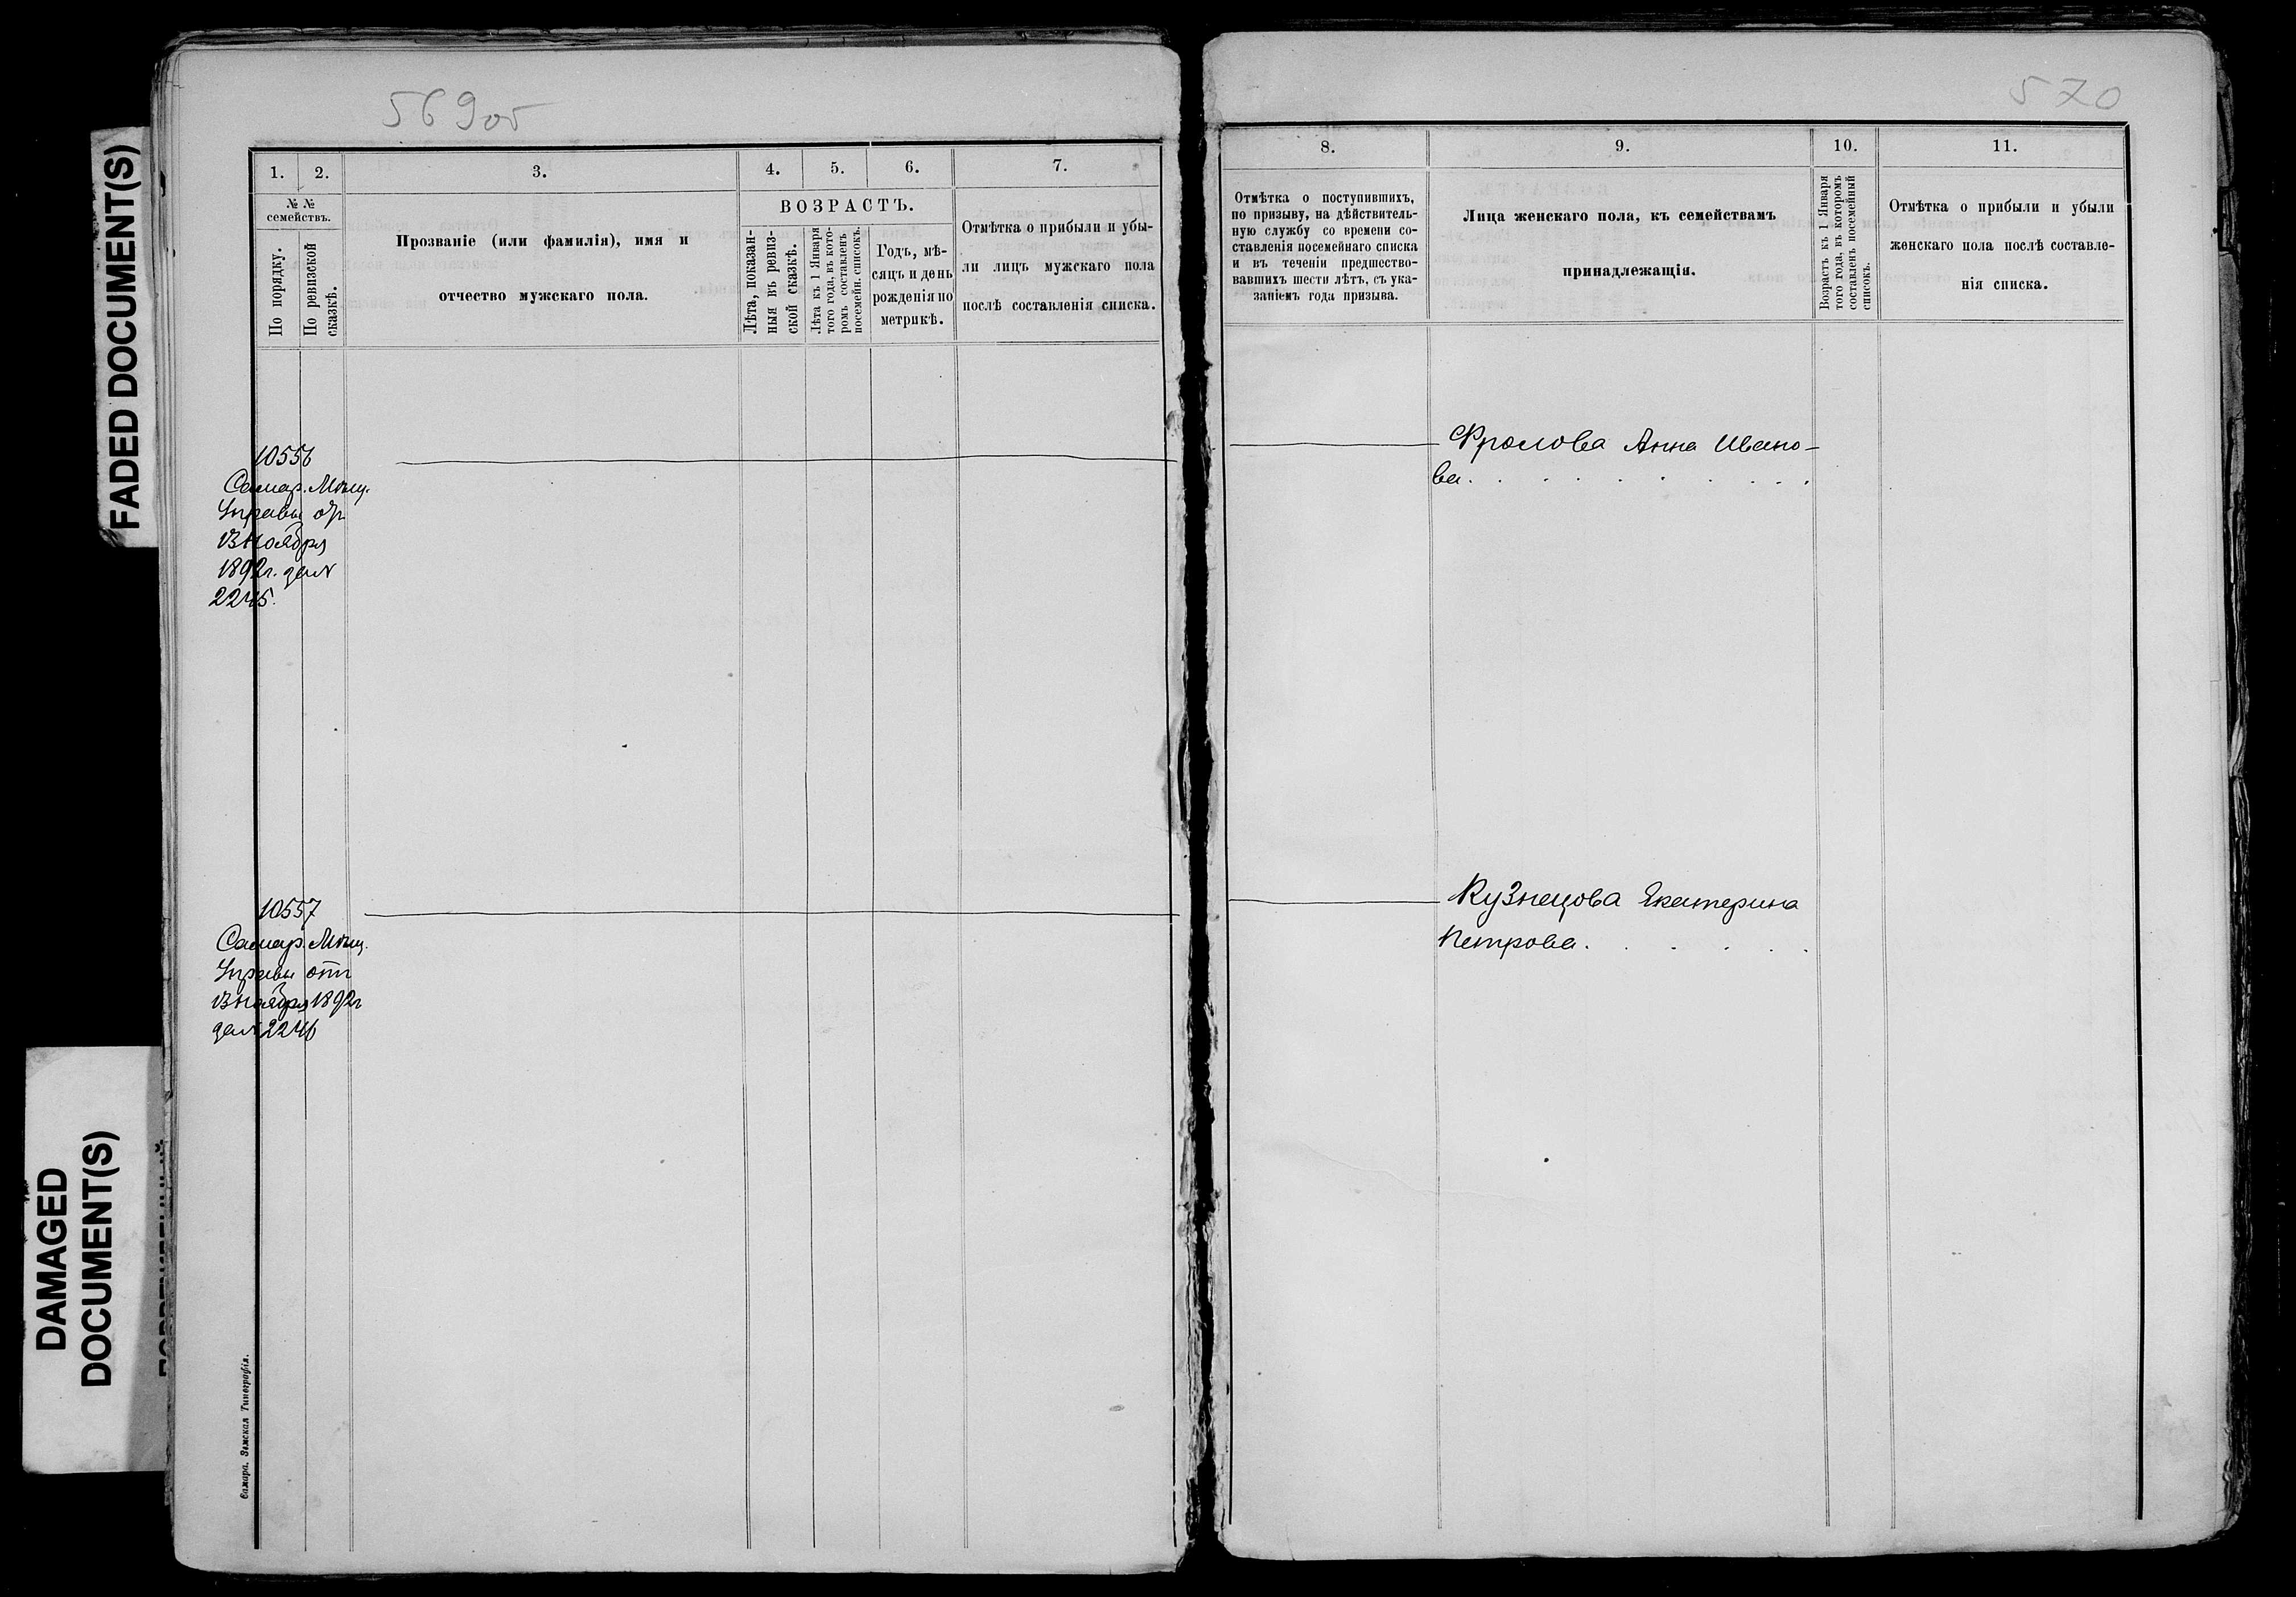 FADED DOCUMENT(S)
DAMAGED
DOCUMENT(S)
569об
1. 2. 3. 4. 5. 6. 7.
№ №
семействъ.
По порядку.
По ревизской
сказкѣ.
Прозваніе (или фамилія), имя и
отчество мужскаго пола.
ВОЗРАСТЪ.
Лѣта, показан-
ныя въ ревиз-
ской сказкѣ.
Лѣта къ 1 Января
того года, въ кото-
ромъ составленъ
посемейн. списокъ.
Годъ, мѣ-
сяцъ и день
рожденія по
метрикѣ.
Отмѣтка о прибыли и убы-
ли лицъ мужскаго пола
послѣ составленія списка.
10556
Самар. Мѣщ.
Управы от
13 Ноября
1892г. за №
2245.
10557
Самар. Мѣщ.
Управы отъ
13 Ноября 1892г
за № 2246
Самара. Земская Типографія.
570
8. 9. 10. 11.
Отмѣтка о поступившихъ,
по призыву, на дѣйствитель-
ную службу со времени со-
ставленія посемейнаго списка
и въ теченіи предшество-
вавшихъ шести лѣтъ, съ ука-
заніемъ года призыва.
Лица женскаго пола, къ семействамъ
принадлежащія.
Возрастъ къ 1 Января
того года, въ которомъ
составленъ посемейный
списокъ.
Отмѣтка о прибыли и убыли
женскаго пола послѣ составле-
нія списка.
Фролова Анна Ивано-
ва.
Кузнецова Екатерина
Петрова.